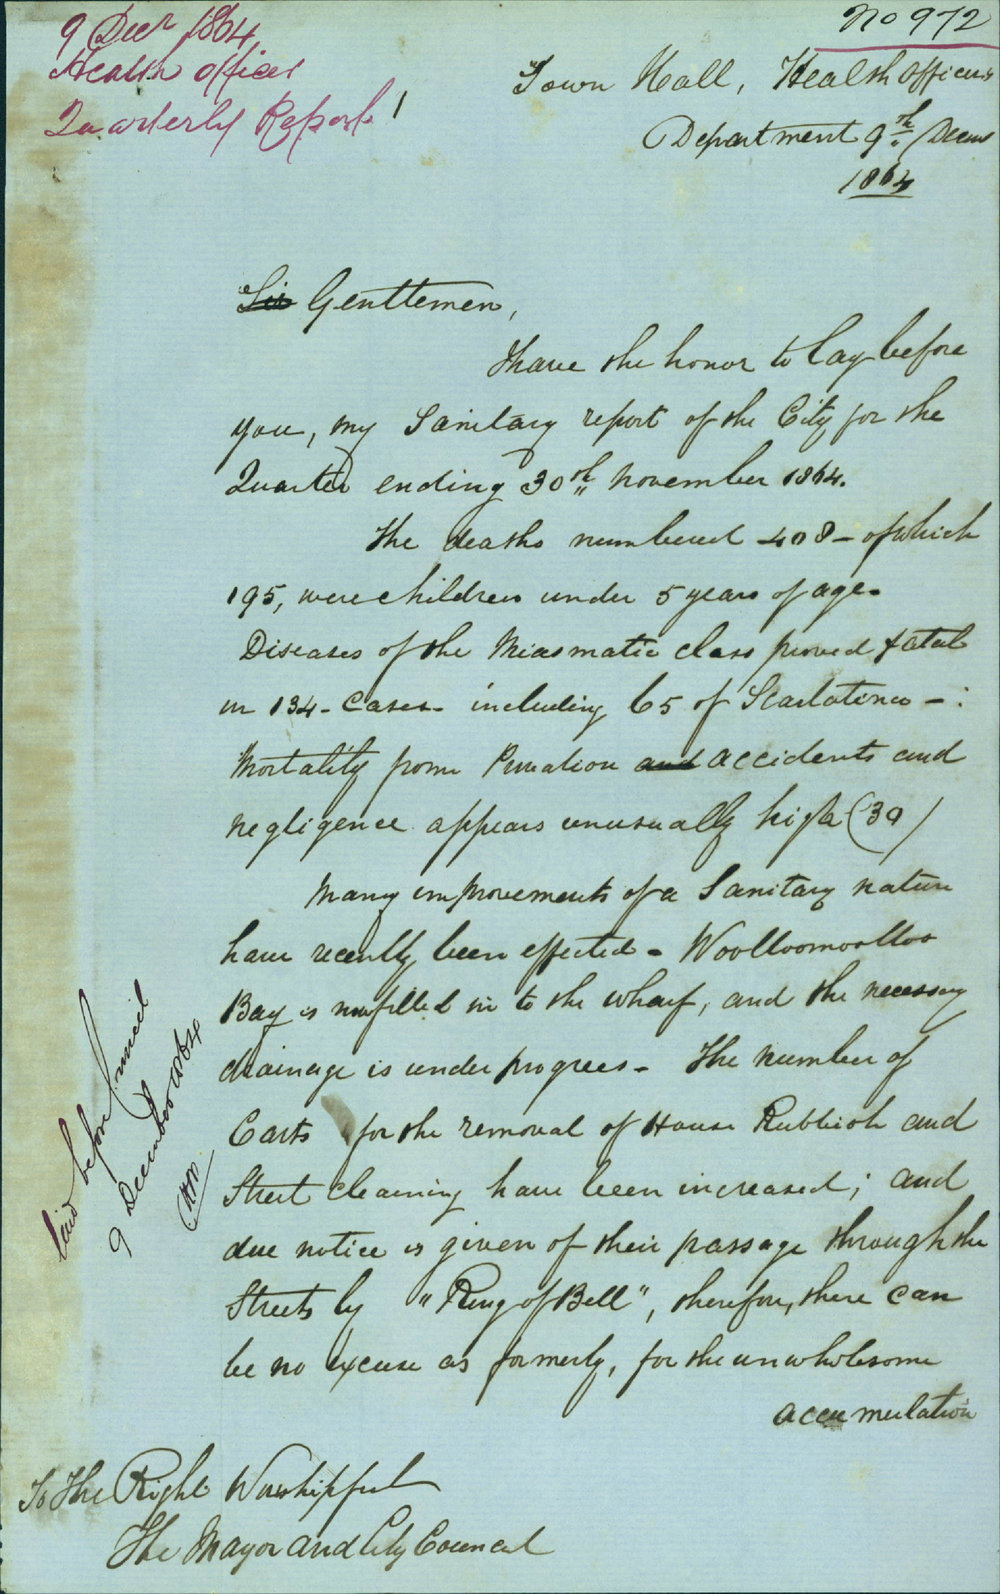 No 972
9 Decr 1864
Health Officer
Quarterly Report
Town Hall, Health Officers
Department 9th Decem
1864
Sir Gentlemen,
I have the honor to lay before
you, my Sanitary report of the City for the
Quarter ending 30th November 1864.
The deaths numbered 408 - of which
195, were children under 5 years of age.
Diseases of the Miasmatic class proved fatal
in 134 - cases - including 65 of Scarlatina - :
Mortality from Privation and accidents and
negligence appears unusually high (39)
Many improvements of a Sanitary nature
have recently been effected - Woolloomoolloo
Bay is now filled in to the wharf, and the necessary
drainage is under progress - The number of
Carts for the removal of House Rubbish and
Street cleaning have been increased; and
due notice is given of their passage through the
Streets by "Ring of Bell", therefore, there can
be no excuse as formerly, for the unwholesome
accumulation
To The Right Worshipful
The Mayor and City Council
laid before Council
9 December 1864